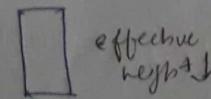 effective
height ↓